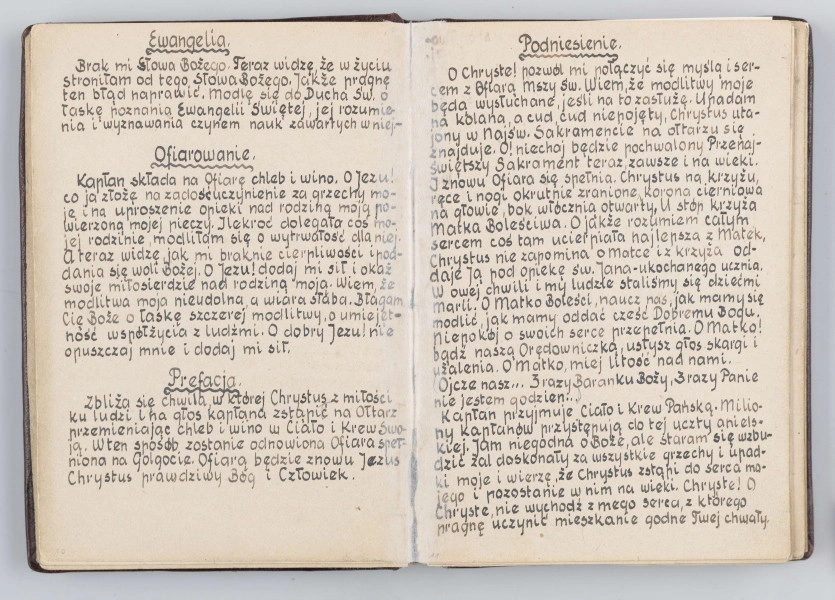 Ewangelia.
Brak mi Słowa Bożego. Teraz widzę, że w życiu
stroniłam od tego Słowa Bożego. Jakże pragnę
ten błąd naprawić. Modlę się do Ducha Św. o
łaskę poznania Ewangelii Świętej, jej rozumie-
nia i wyznawania czynem nauk zawartych w niej.-
Ofiarowanie.
Kapłan składa na Ofiarę chleb i wino. O Jezu!
co ja złożę na zadośćuczynienie za grzechy mo-
je i na uproszenie opieki nad rodziną moją po-
wierzoną mojej pieczy. Ilekroć dolegało coś mo-
jej rodzinie, modliłam się o wytrwałość dla niej.
A teraz widzę jak mi braknie cierpliwości i pod-
dania się woli Bożej. O Jezu! dodaj mi sił i okaż
swoje miłosierdzie nad rodziną moją. Wiem, że
modlitwa moja nieudolna, a wiara słaba. Błagam
Cię Boże o łaskę szczerej modlitwy, o umiejęt-
ność współżycia z ludźmi. O dobry Jezu! nie
opuszczaj mnie i dodaj mi sił.
Prefacja.
Zbliża się chwila, w której Chrystus z miłości
ku ludzi i na głos kapłana zstąpić na Ołtarz
przemieniając chleb i wino w Ciało i Krew Swo-
ją. W ten sposób zostanie odnowiona Ofiara speł-
niona na Golgocie. Ofiarą będzie znowu Jezus
Chrystus prawdziwy Bóg i Człowiek.
Podniesienie.
O Chryste! pozwól mi połączyć się myślą i ser-
cem z Ofiarą Mszy Św. Wiem, że modlitwy moje
będą wysłuchane, jeśli na to zasłużę. Upadam
na kolana, a cud, cud niepojęty, Chrystus uta-
jony w Najśw. Sakramencie na ołtarzu się
znajduje. O! niechaj będzie pochwalony Przenaj-
świętszy Sakrament teraz, zawsze i na wieki.
I znowu Ofiara się spełnia. Chrystus na krzyżu,
ręce i nogi okrutnie zranione, korona cierniowa
na głowie, bok włócznią otwarty. U stóp krzyża
Matka Boleściwa. O jakże rozumiem całym
sercem coś tam ucierpiała najlepsza z Matek,
Chrystus nie zapomina o Matce i z krzyża od-
daje Ją pod opiekę św. Jana-ukochanego ucznia.
W owej chwili i my ludzie staliśmy się dziećmi
Marii. O Matko Boleści, naucz nas, jak mamy się
modlić, jak mamy oddać cześć Dobremu Bogu.
Niepokój o swoich serce przepełnia. O Matko!
bądź naszą Orędowniczką, usłysz głos skargi i
użalenia. O Matko, miej litość nad nami.
Ojcze nasz... 3 razy Baranku Boży, 3 razy Panie
nie jestem godzien...)
Kapłan przyjmuje Ciało i Krew Pańską. Milio-
ny Kapłanów przystępują do tej uczty aniels-
kiej. Jam niegodna o Boże, ale staram się wzbu-
dzić żal doskonały za wszystkie grzechy i upad-
ki moje i wierzę, że Chrystus zstąpi do serca mo-
jego i pozostanie w nim na wieki. Chryste! O
Chryste, nie wychodź z mego serca, z którego
pragnę uczynić mieszkanie godne Twej chwały.